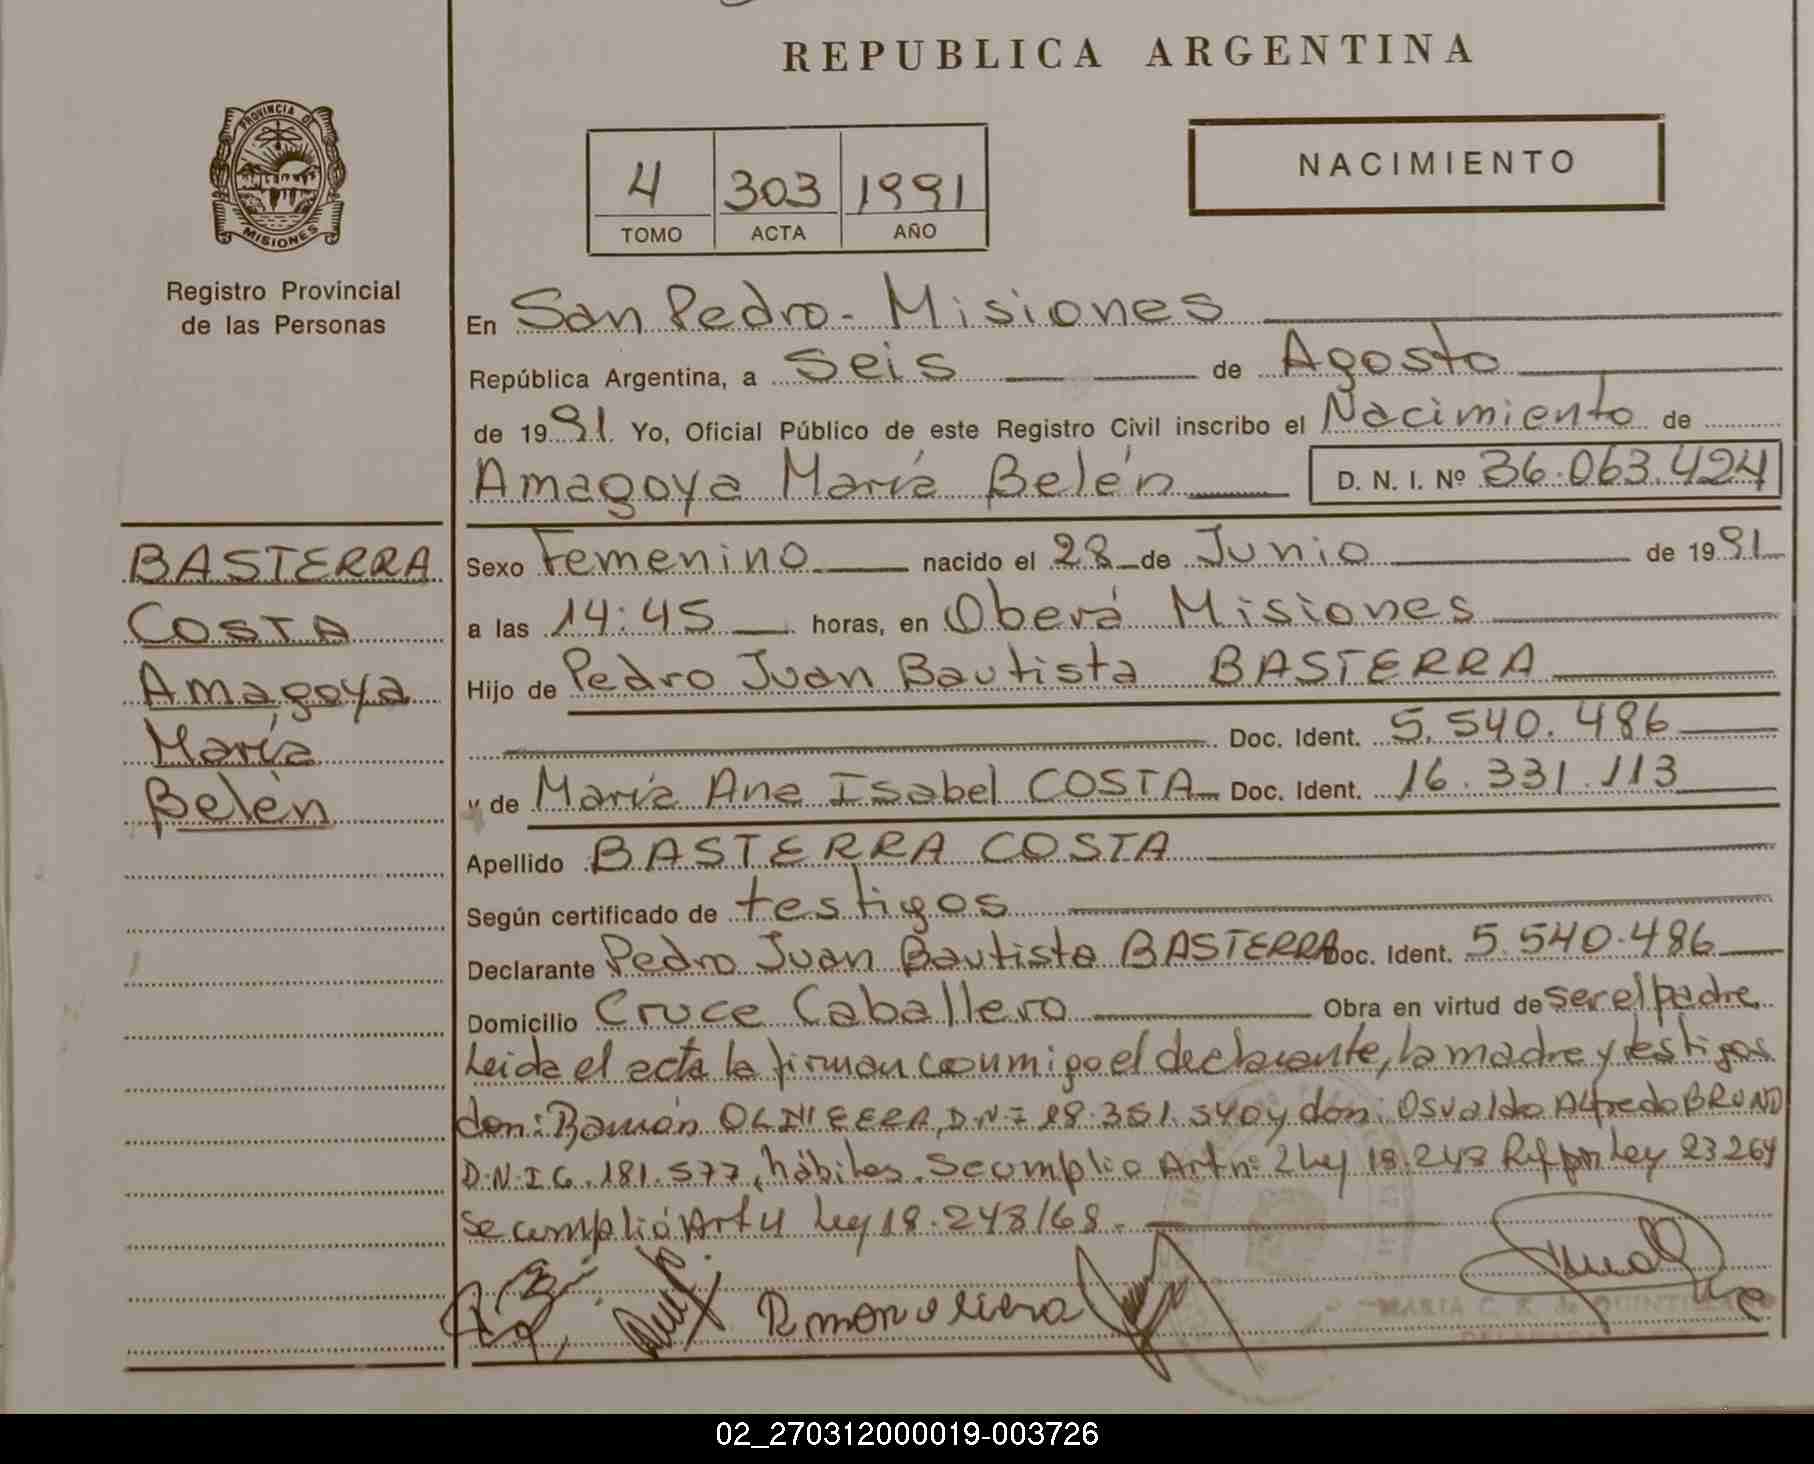 REPUBLICA ARGENTINA
PROVINCIA DE
MISIONES
Registro Provincial
de las Personas
4 303 1991
TOMO ACTA AÑO
NACIMIENTO
En San Pedro - Misiones
República Argentina, a Seis de Agosto
de 1991. Yo, Oficial Público de este Registro Civil inscribo el Nacimiento de
Amagoya María Belén D. N. I. Nº 36.063.424
BASTERRA
COSTA
Amagoya
María
Belén
Sexo Femenino nacido el 28 de Junio de 1991
a las 14:45 horas, en Oberá Misiones
Hijo de Pedro Juan Bautista BASTERRA
Doc. Ident. 5.540.486
y de María Ana Isabel COSTA Doc. Ident. 16.331.113
Apellido BASTERRA COSTA
Según certificado de testigos
Declarante Pedro Juan Bautista BASTERRA Doc. Ident. 5.540.486
Domicilio Cruce Caballero Obra en virtud de ser el padre
Leida el acta la firman conmigo el declarante, la madre y testigos
don: Ramón D.N.I 18.351.540 y don: Osvaldo Alfredo BRUND
D.N.I 6.181.577, hábiles. Se cumplio Art nº 2 Ley 18.248 Ref por Ley 23264
Se cumplió Art 4 Ley 18.248/68.
Rmon olivera
MARIA C. R. de
02_270312000019-003726